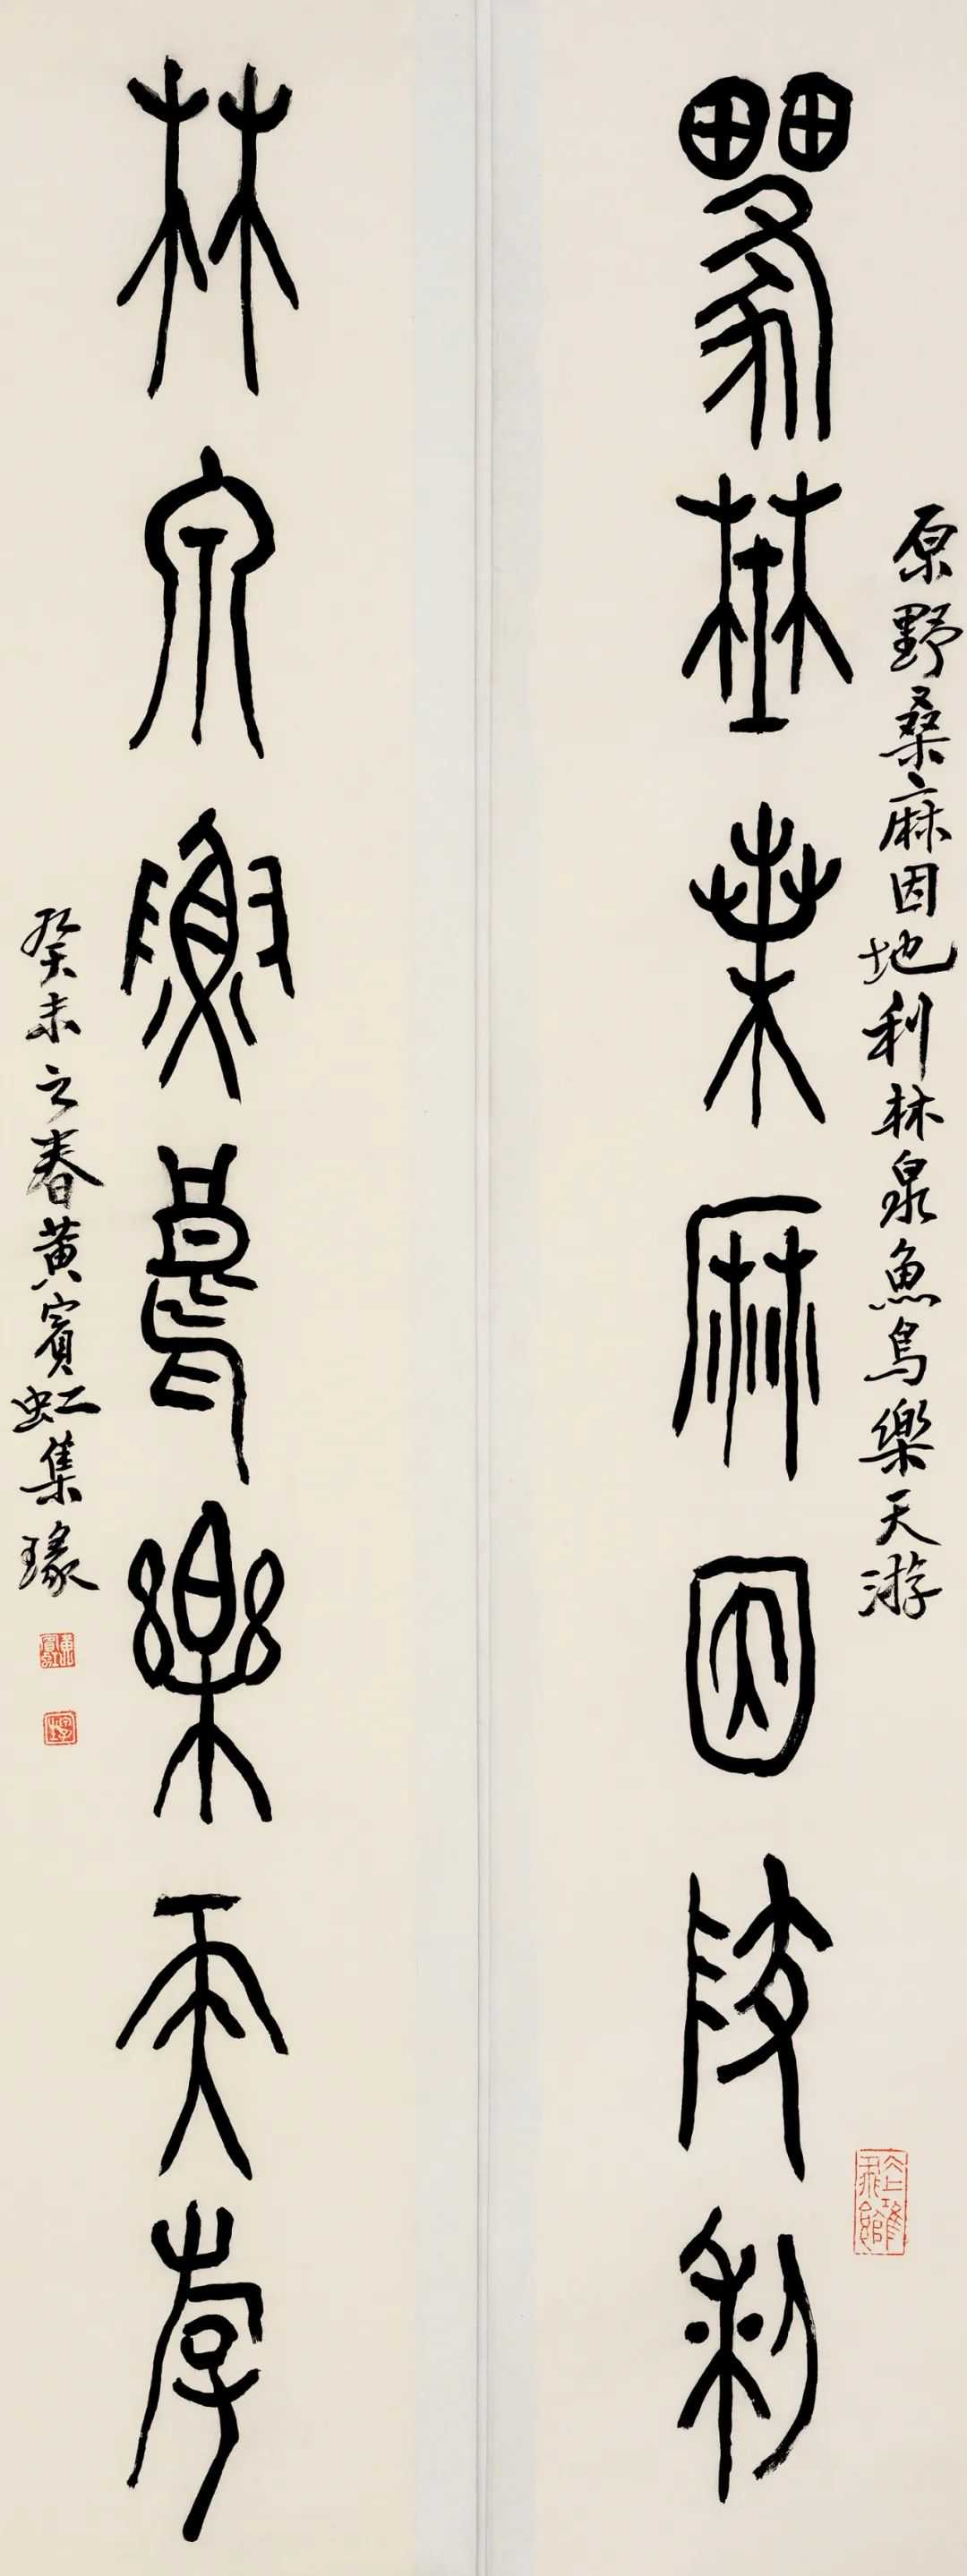 原野桑麻因地利林泉魚鳥樂天游
原野桑麻因地利
林泉魚鳥樂天游
癸未之春黄賓虹集瑑
黃賓虹